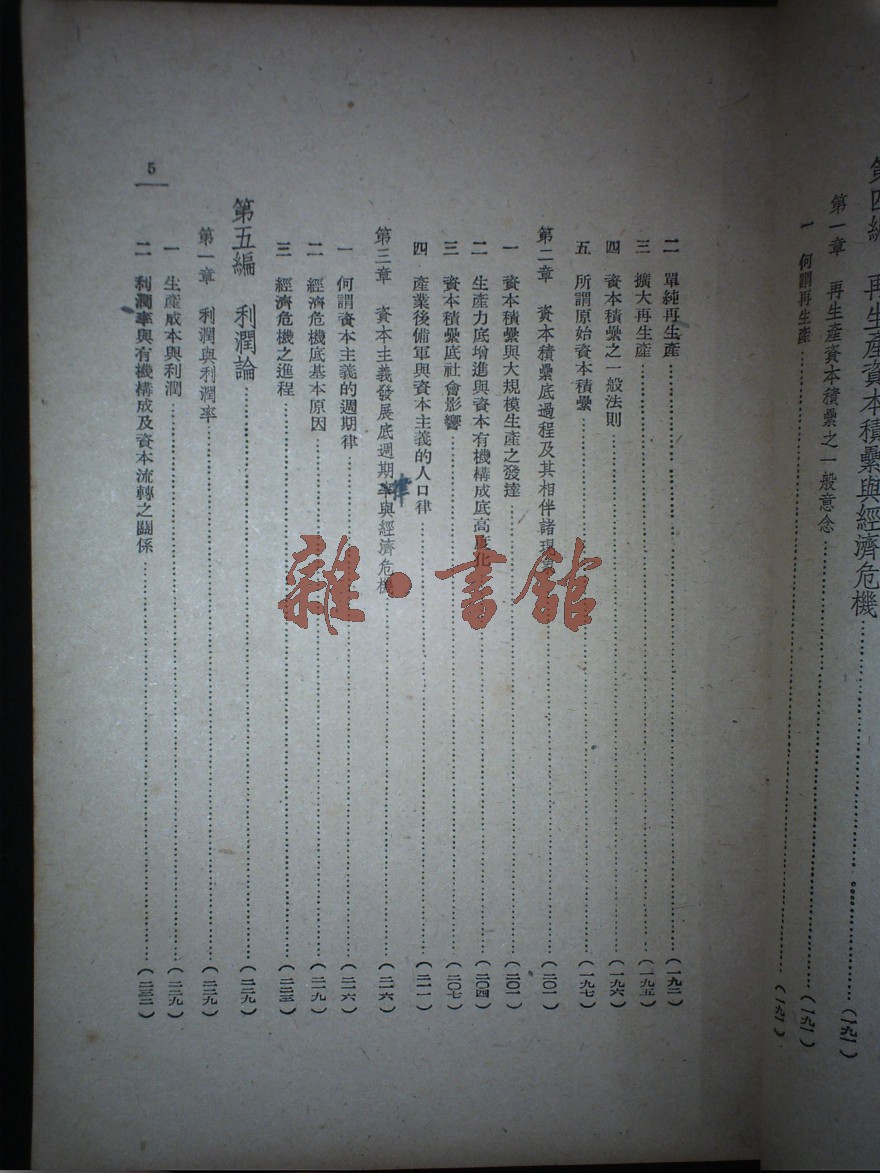 第四編　再生產資本積纍與經濟危機……（一九一）
第一章　再生產資本積纍之一般意念……（一九一）
一　何謂再生產……（一九一）
二　單純再生產……（一九二）
三　擴大再生產……（一九五）
四　資本積纍之一般法則……（一九六）
五　所謂原始資本積纍……（一九七）
第二章　資本積纍底過程及其相伴諸現……（二〇一）
一　資本積纍與大規模生產之發達……（二〇一）
二　生產力底增進與資本有機構成底高度化……（二〇四）
三　資本積纍底社會影響……（二〇七）
四　產業後備軍與資本主義的人口律……（二一一）
第三章　資本主義發展底週期率與經濟危機……（二一六）
律
一　何謂資本主義的週期律……（二一六）
二　經濟危機底基本原因……（二一九）
三　經濟危機之進程……（二二三）
第五編　利潤論……（二二九）
第一章　利潤與利潤率……（二二九）
一　生產成本與利潤……（二二九）
二　利潤率與有機構成及資本流轉之關係……（二三二）
5
雜·書館